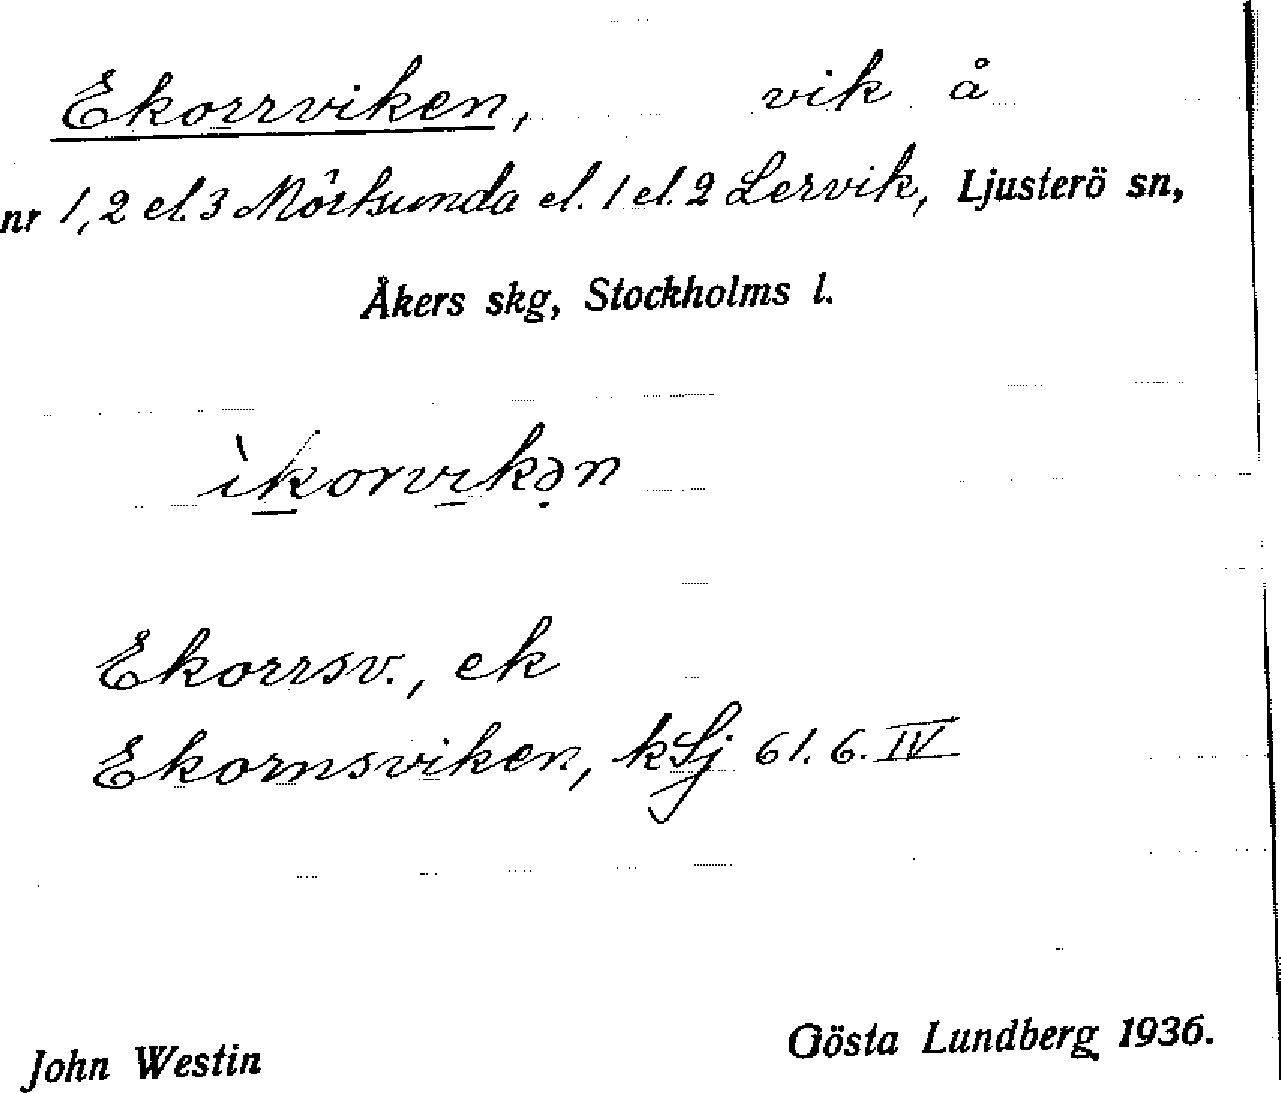 Ekorrviken, vik å
nr 1, 2 el. 3 Mörtsunda el. 1 el. 2 Lervik, Ljusterö sn,
Åkers skg, Stockholms l.
ìkorvikən
Ekorrsv., ek
Ekornsviken, kLj 61.6.IV
John Westin
Gösta Lundberg 1936.